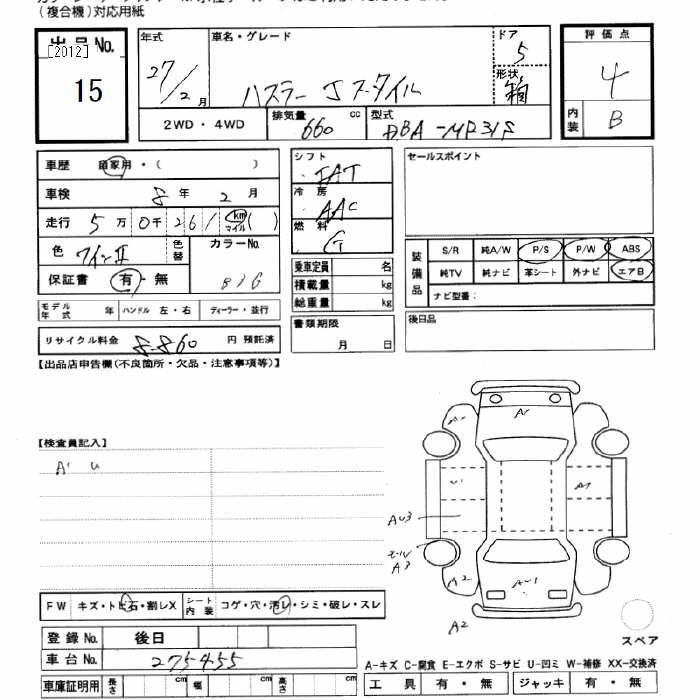 (複合機)対応用紙
出品No. [2012]
15
年式 27/2月
車名・グレード ハスラー Jスタイル
ドア 5
形状 箱
評価点 4
内装 B
2WD・4WD
排気量 660 cc
型式 DBA-MR31S
車歴 自家用・( )
車検 8年 2月
走行 5万0千261 km マイル ( )
色 ワインⅡ 色替
カラーNo.
保証書 有・無
モデル年式 年 ハンドル 左・右 ディーラー・並行
リサイクル料金 8860 円 預託済
シフト IAT
冷房 AAC
燃料 G
乗車定員 名
積載量 kg
総重量 kg
書類期限 月 日
セールスポイント
装備品 S/R 純A/W P/S P/W ABS
純TV 純ナビ 革シート 外ナビ エアB
ナビ型番:
後日品
【出品店申告欄(不良箇所・欠品・注意事項等)】
【検査員記入】
A1 U
A1
U1
A1
AU3
A3
A2
AU1
A2
FW キズ・トビ石・割レX シート内装 コゲ・穴・汚レ・シミ・破レ・スレ
登録No. 後日
車台No. 275455
車庫証明用 長さ cm 幅 cm 高さ cm
スペア
A-キズ C-腐食 E-エクボ S-サビ U-凹ミ W-補修 XX-交換済
工具 有・無 ジャッキ 有・無